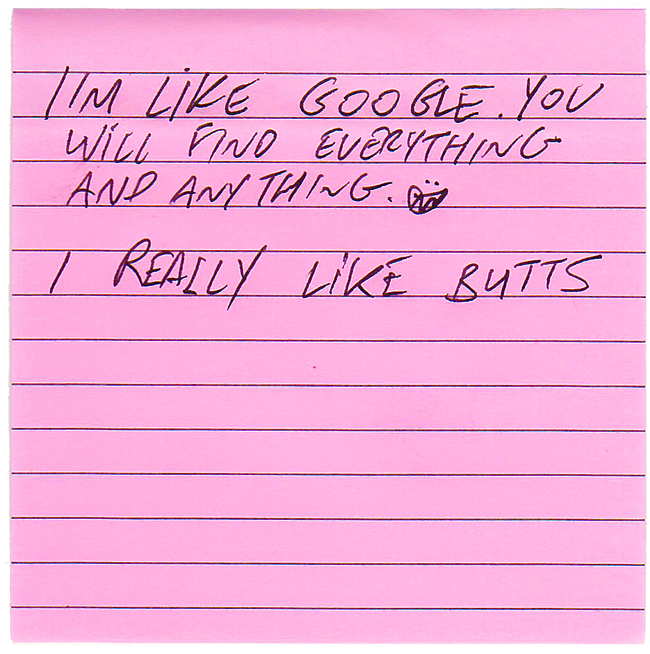 I'M LIKE GOOGLE. YOU
WILL FIND EVERYTHING
AND ANYTHING.
I REALLY LIKE BUTTS